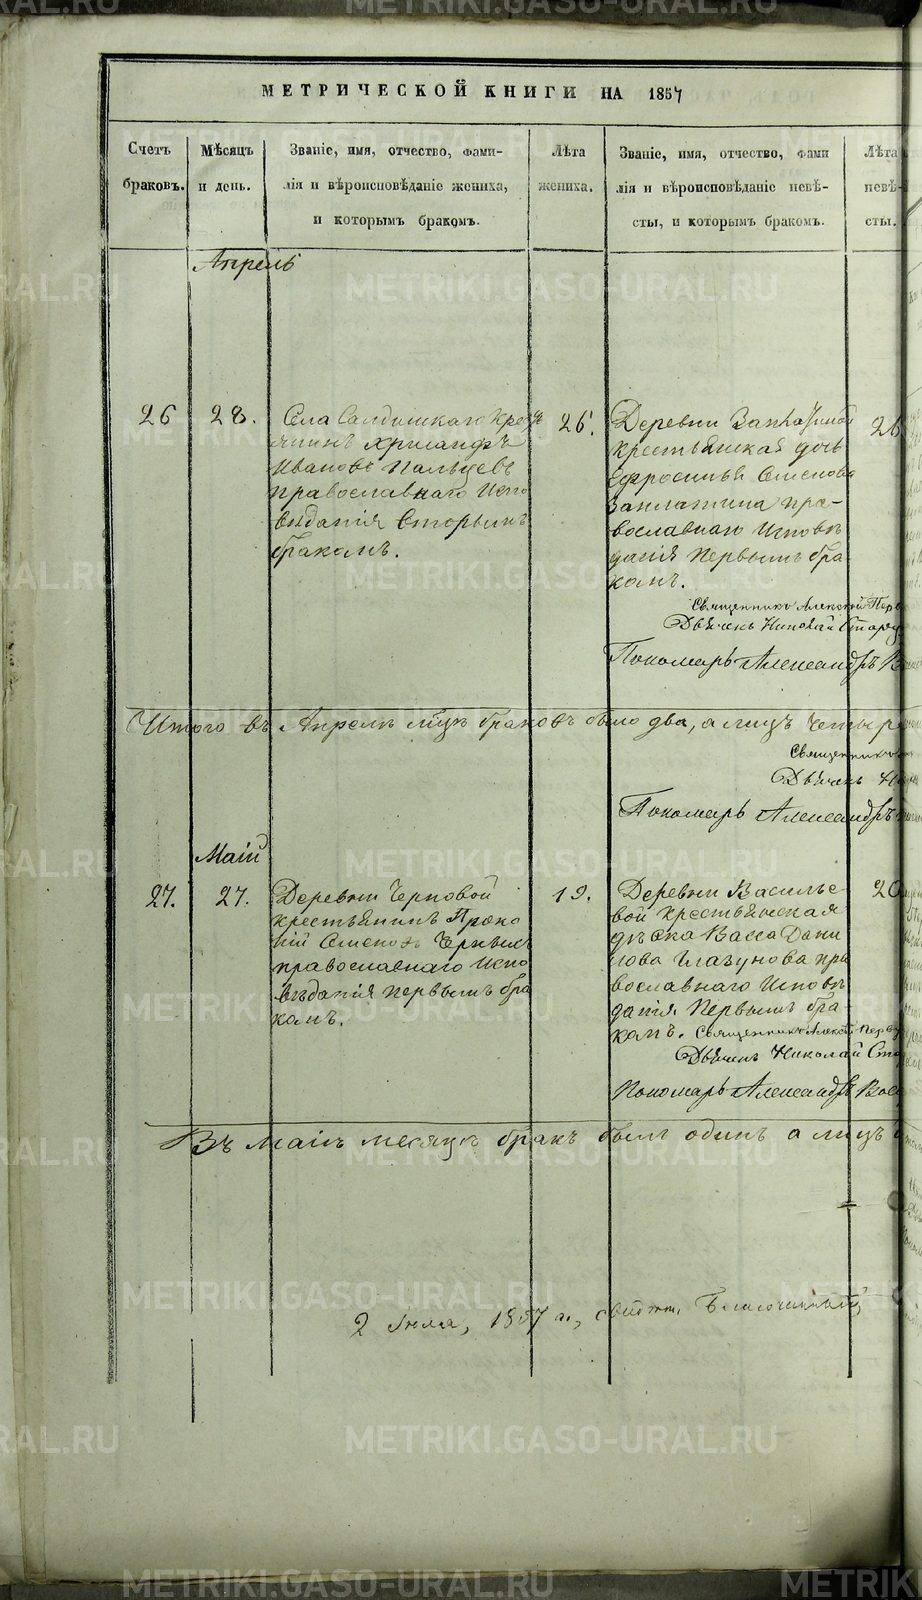 МЕТРИЧЕСКОЙ КНИГИ НА 1857
Счетъ браковъ.
Мѣсяцъ и день.
Званіе, имя, отчество, фами-
лія и вѣроисповѣданіе жениха,
и которымъ бракомъ.
Лѣта жениха.
Званіе, имя, отчество, фами
лія и вѣроисповѣданіе невѣ-
сты, и которымъ бракомъ.
Лѣта невѣ-
сты.
Апрель
26
28.
Села Салдинскаго Крес
янинъ Хрисанфъ
Ивановъ Пальцевъ
православнаго Испо
вѣданія Вторымъ
бракомъ.
26.
Деревни
крестьянская дочь
Ефросинья Семенова
Заплатина пра-
вославнаго Исповѣ
данія Первымъ бра
комъ.
26
Священникъ Алексей
Дьячекъ Николай
Пономарь Александръ
Итого въ Апрелѣ м̃цѣ браковъ было два, а лицъ четыре
Священникъ
Дьячекъ
Пономарь Александръ
Маій
27.
27.
Деревни Черновой
крестьянинъ Проко
пій Семеновъ Черныхъ
православнаго Испо
вѣданія первымъ бра
комъ.
19.
Деревни Василье
вой крестьянская
дѣвка Васса Дани
лова Глазунова пра
вославнаго Исповѣ
данія. Первымъ бра-
комъ. Священникъ Алексей
20
Дьячекъ Николай
Пономарь Александръ
Въ Маіѣ месяцѣ бракъ былъ одинъ а лицъ
2 Іюля, 1857 г., Благочинный,